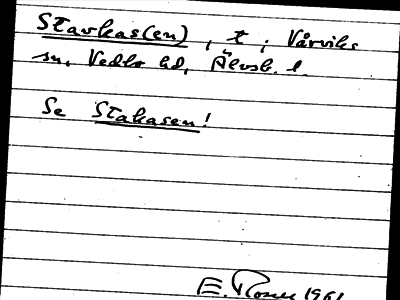 Stavkas(en), t; Vårviks
sn, Vedbo hd, Älvsb. l.
Se Stakasen!
E. Rosell 1961